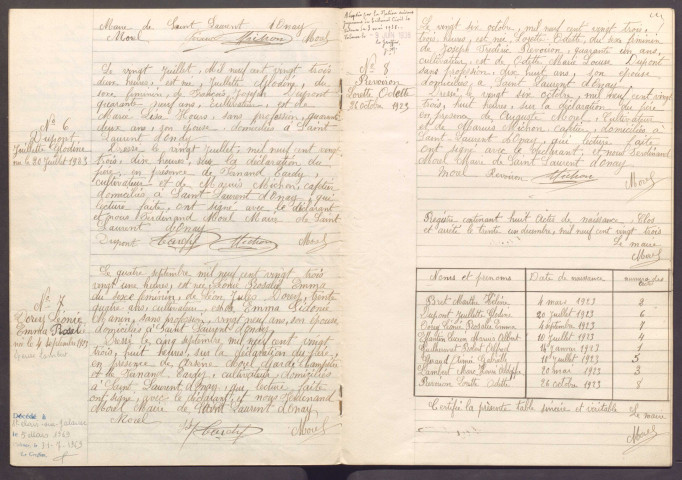 Maire de Saint Laurent d'Onay
Morel Morel
Le vingt juillet, mil neuf cent vingt trois
deux heures, est née, Juliette Clodine, du
sexe féminin, de Joseph Dupont
quarante neuf ans, cultivateur, et de
Marie Lisa Hours, sans profession, quarante
deux ans, son épouse, domiciliés à Saint
Laurent d'Onay
Dressé, le vingt juillet, mil neuf cent vingt
trois, dix heures, sur la déclaration du
père, en présence de Fernand Cardy,
cultivateur et de Marius Michon, captier
domiciliés à Saint Laurent d'Onay, qui
lecture faite, ont signé avec le déclarant
et nous Ferdinand Morel Maire de Saint
Laurent d'Onay
Dupont Morel
No 6
Dupont
Juillette Clodine
née le 20 Juillet 1923
Le quatre septembre mil neuf cent vingt trois
vingt une heures, est née, Léonie Rosalie Emma
du sexe féminin, de Léon Jules Dorey, trente
quatre ans, cultivateur, et de Emma Sidonie
sans profession, vingt neuf ans, son épouse
domiciliés à Saint Laurent d'Onay
Dressé, le cinq septembre mil neuf cent vingt
trois, huit heures, sur la déclaration du père,
en présence de Morel Garde Champêtre
et de Fernand Cardy, cultivateur, domiciliés
à Saint Laurent d'Onay, qui, lecture faite
ont signé, avec le déclarant et nous Ferdinand
Morel Maire de Saint Laurent d'Onay
Morel Morel
No 7
Dorey Léonie
Emma Rosalie
née le 4 septembre 1923
Décédée à
le 5 Mars 1963
No 8
Revoiron
Lorette Odette
26 octobre 1923
Le vingt six octobre, mil neuf cent vingt trois,
trois heures, est née Lorette Odette, du sexe féminin
de Joseph Frédéric Revoiron, quarante un ans,
cultivateur, et de Odette Marie Louise Dupont
sans profession, dix huit ans, son épouse
domiciliés à Saint Laurent d'Onay
Dressé, le vingt six octobre, mil neuf cent vingt
trois, huit heures, sur la déclaration du père
en présence de Auguste Morel, cultivateur
et de Marius Michon captier, domiciliés à
Saint Laurent d'Onay, qui lecture faite
ont signé avec le déclarant, et nous Ferdinand
Morel Maire de Saint Laurent d'Onay
Morel Revoiron Michon
Morel
Registre contenant huit actes de naissance, Clos
et arrêté le trente un décembre, mil neuf cent vingt trois
Le maire
Morel
Noms et prénoms Date de naissance numéros des actes
Marthe Hélène 4 mars 1923 2
Dupont Juillette Clodine 20 juillet 1923 6
Dorey Léonie Rosalie Emma 4 septembre 1923 7
Albert 10 juillet 1923 4
Albert 1923 1
Aimé Gabriel 1923 5
20 mai 1923 3
Revoiron Lorette Odette 26 octobre 1923 8
Certifié la présente table sincère et véritable
Le maire
Morel